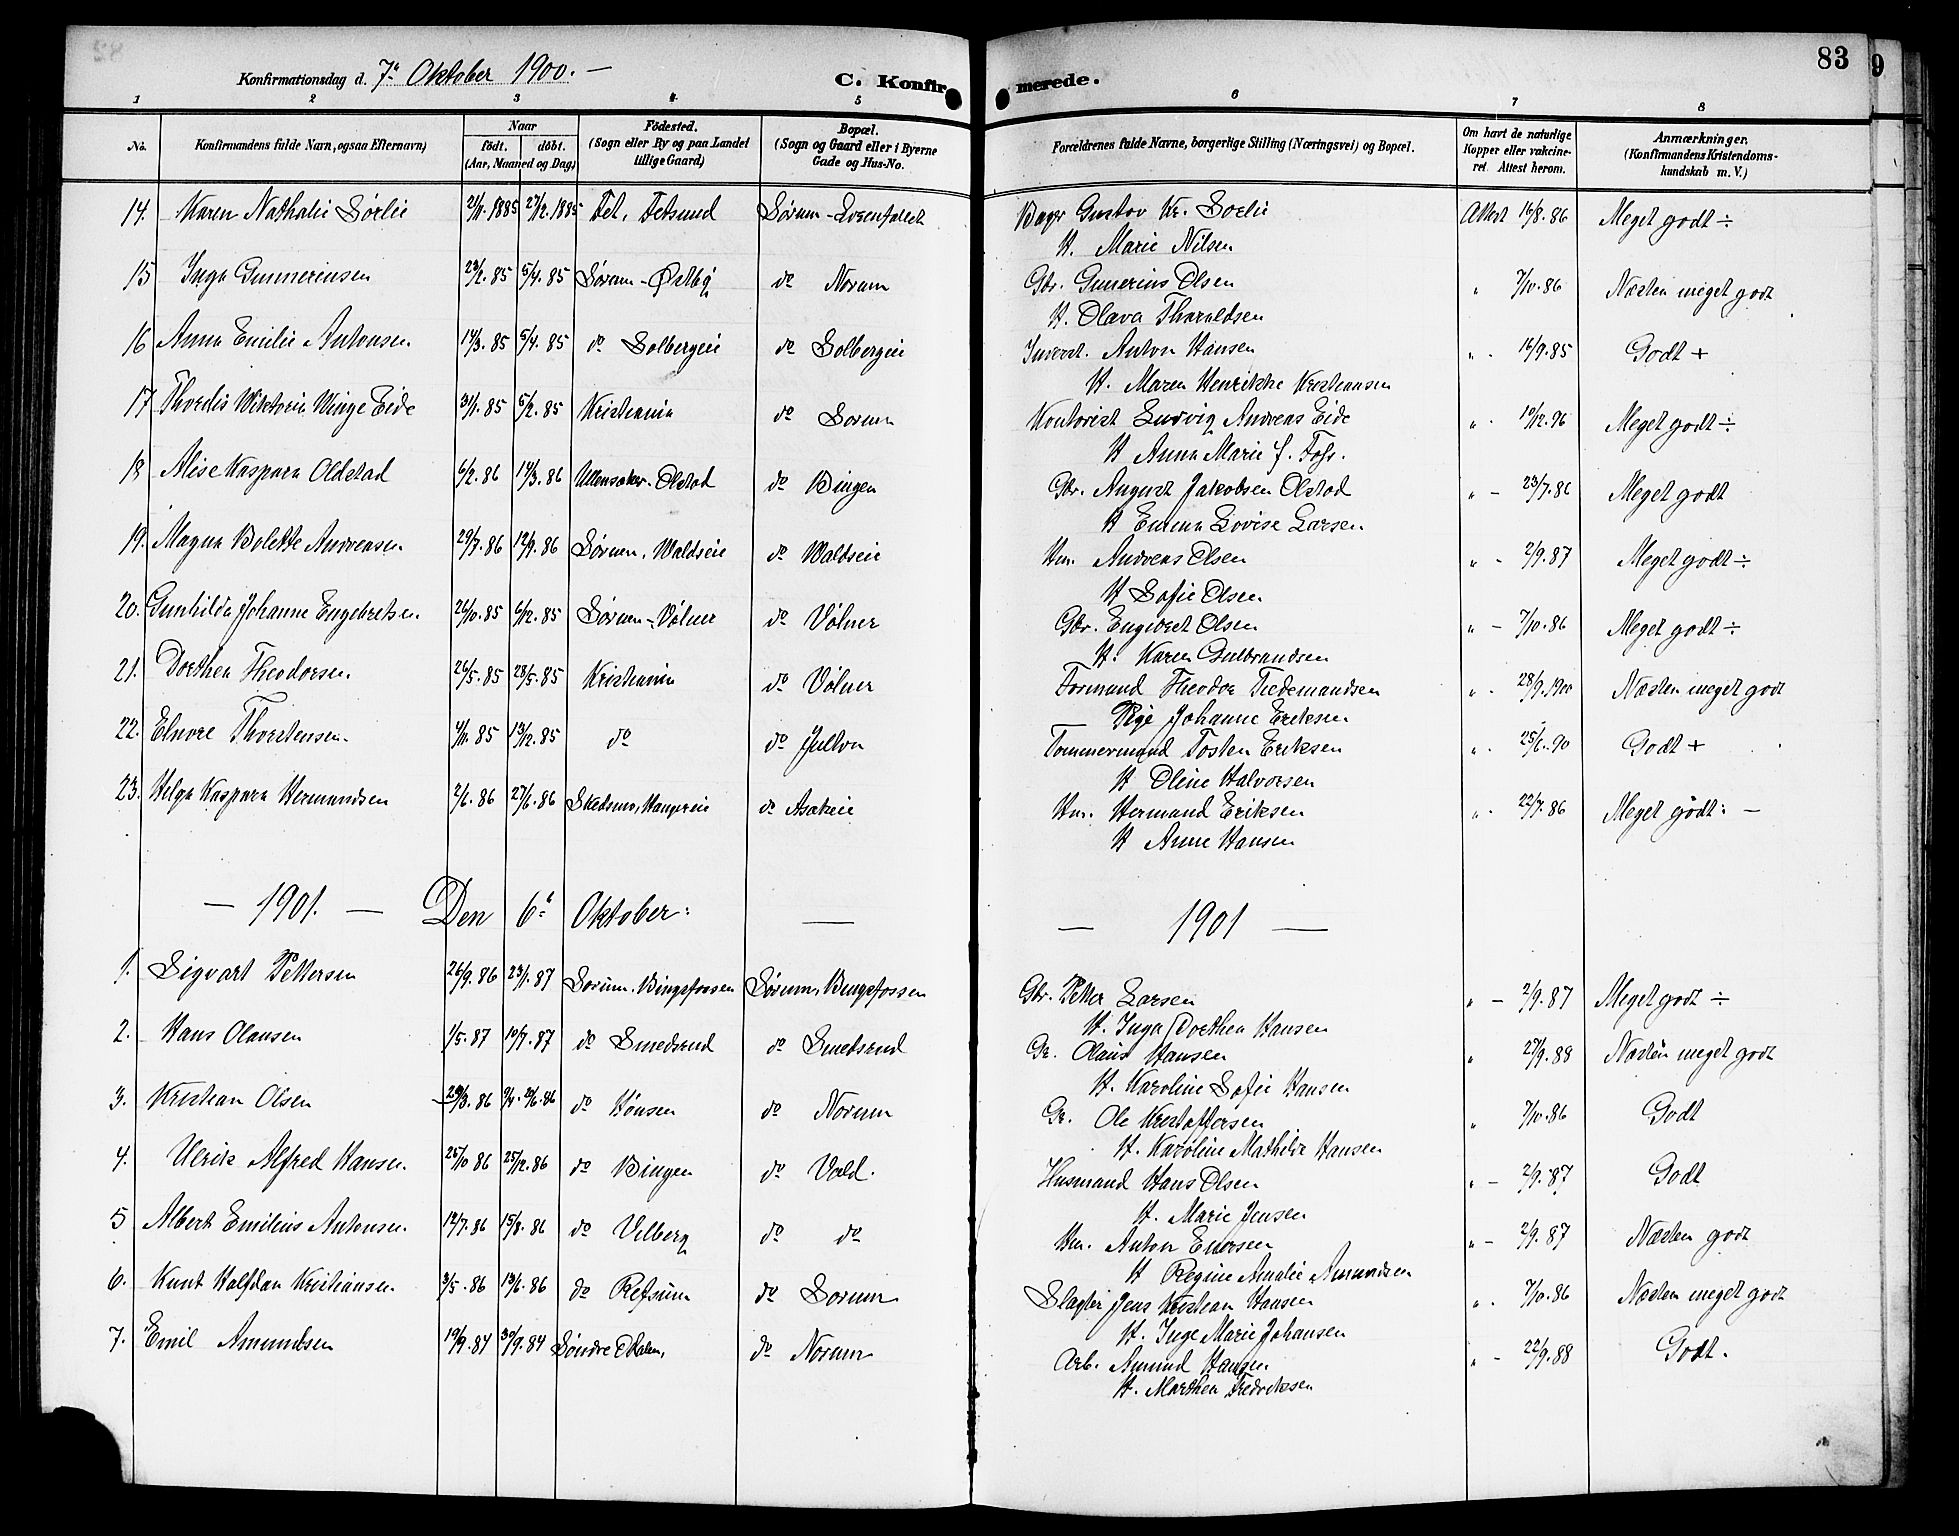 83
9
Konfirmationsdag d. 7de Oktober 1900. —
C. Konfirmerede.
1 2 3 4 5 6 7 8
No. Konfirmandens fulde Navn, ogsaa Efternavn) Naar født. døbt. (Aar, Maaned og Dag) Fødested. (Sogn eller By og paa Landet tillige Gaard) Bopæl. (Sogn og Gaard eller i Byerne Gade og Hus-No. Forældrenes fulde Navne, borgerlige Stilling (Næringsvei) og Bopæl. Om havt de naturlige Kopper eller vakcineret. Attest herom. Anmærkninger. (Konfirmandens Kristendomskundskab m. V.)
14. Karen Nathalie Sørlie 1885 27/12. 1885 Fet, Fetsund Sørum - Gustav Kr. Sørlie Attest 16/8. 86 Meget godt ÷
H. Marie Nilsen
15 Inga Gunneriusen 23/2. 85 5/4. 85 Sørum - Østby do Norum Gbr. Gunerius Olsen " 7/10. 86 Næsten meget godt
H. Olava Tharaldsen
16 Anna Emilie Antonsen 14/3. 85 5/4. 85 do Solbergeie do Solbergeie Anton Hansen " - 16/9. 85 Godt +
H. Maren Henrikke Kristiansen
17 Thordis Wiktoria Winge Eide 31/1. 85 5/2. 85 Kristiania do Sørum Kontorist Ludvig Andreas Eide " - 10/12. 96 Meget godt ÷
H Anna Marie f. Foss.
18 Alise Kaspara Oldstad 6/2. 86 14/3. 86 Ullensaker - Olstad do Bingen Gbr. August Jakobsen Olstad " - 23/7. 86 Meget godt
H Emma Lovise Larsen
19. Magna Bolette Andreasen 29/7. 86 12/9. 86 Sørum, Waldseie do Waldseie Hm. Andreas Olsen " - 2/9. 87 Meget godt ÷
H Sofie Olsen
20. Gunhilda Johanne Engebretsen 26/10. 85 6/12. 85 Sørum - Vølner do Vølner Gbr. Engebret Olsen " - 7/10. 86 Meget godt ÷
H. Karen Gulbrandsen
21. Dorthea Theodorsen 26/5. 85 28/5. 85 Kristiania do Vølner Formand Theodor Tiedemandsen " - 28/9. 1900 Næsten meget godt
Pige Johanne Eriksen
22. Elnore Thorstensen. 4/11. 85 13/12. 85 do do Julton Tømmermand Tosten Eriksen " - 25/6. 90 Godt +
H Oline Halvorsen
23. Helga Kaspara Hermandsen 2/6. 86 27/6. 86 Skedsmo, do Asakeie Hm. Hermand Eriksen " - 22/7. 86 Meget godt: —
H Anne Hansen
— 1901. — Den 6te Oktober: — — 1901 —
1. Sigvart Pettersen 26/9. 86 23/1. 87 Sørum, Bingsfossen Sørum, Bingsfossen Gbr. Petter Larsen " - 2/9. 87 Meget godt ÷
H. Inga Dorthea Hansen
2. Hans Olausen 1/5. 87 10/7. 87 do Smedsrud do Smedsrud Gr. Olaus Hansen " 27/9. 88 Næsten meget godt
H. Karoline Sofie Hansen
3. Kristian Olsen 29/3. 86 9/4. 20/6. 86 do Hønsen do Norum Gr. Ole Kristoffersen " 7/10. 86 Godt
H. Karoline Mathilde Hansen
4. Ulrik Alfred Hansen 25/10 86 25/12. 86 do Bingen do Vald. Husmand Hans Olsen " - 2/9. 87 Godt
H. Marie Jensen
5 Albert Emilius Antonsen 12/7. 86 15/8. 86 do Vilberg do do Hm. Anton Enersen " - 2/9. 87 Næsten godt
H Regine Amalie Amundsen
6. Knut Halfdan Kristiansen 3/5. 86 13/6. 86 do Refsum do Sørum Slagter Jens Kristian Hansen " - 7/10. 86 Næsten meget godt
H. Inge Marie Johansen
7. Emil Amundsen 19/9. 84 30/9. 84 Søndre do Norum Arb. Amund Hansen " - 22/9. 88 Godt.
H. Marthea Fredriksen